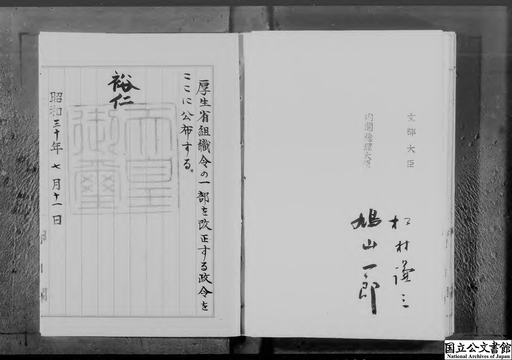 厚生省組織令の一部を改正する政令を
ここに公布する。
裕仁
天皇
御璽
昭和三十年七月十一日
文部大臣
松村謙三
内閣総理大臣
鳩山一郎
国立公文書館
National Archives of Japan